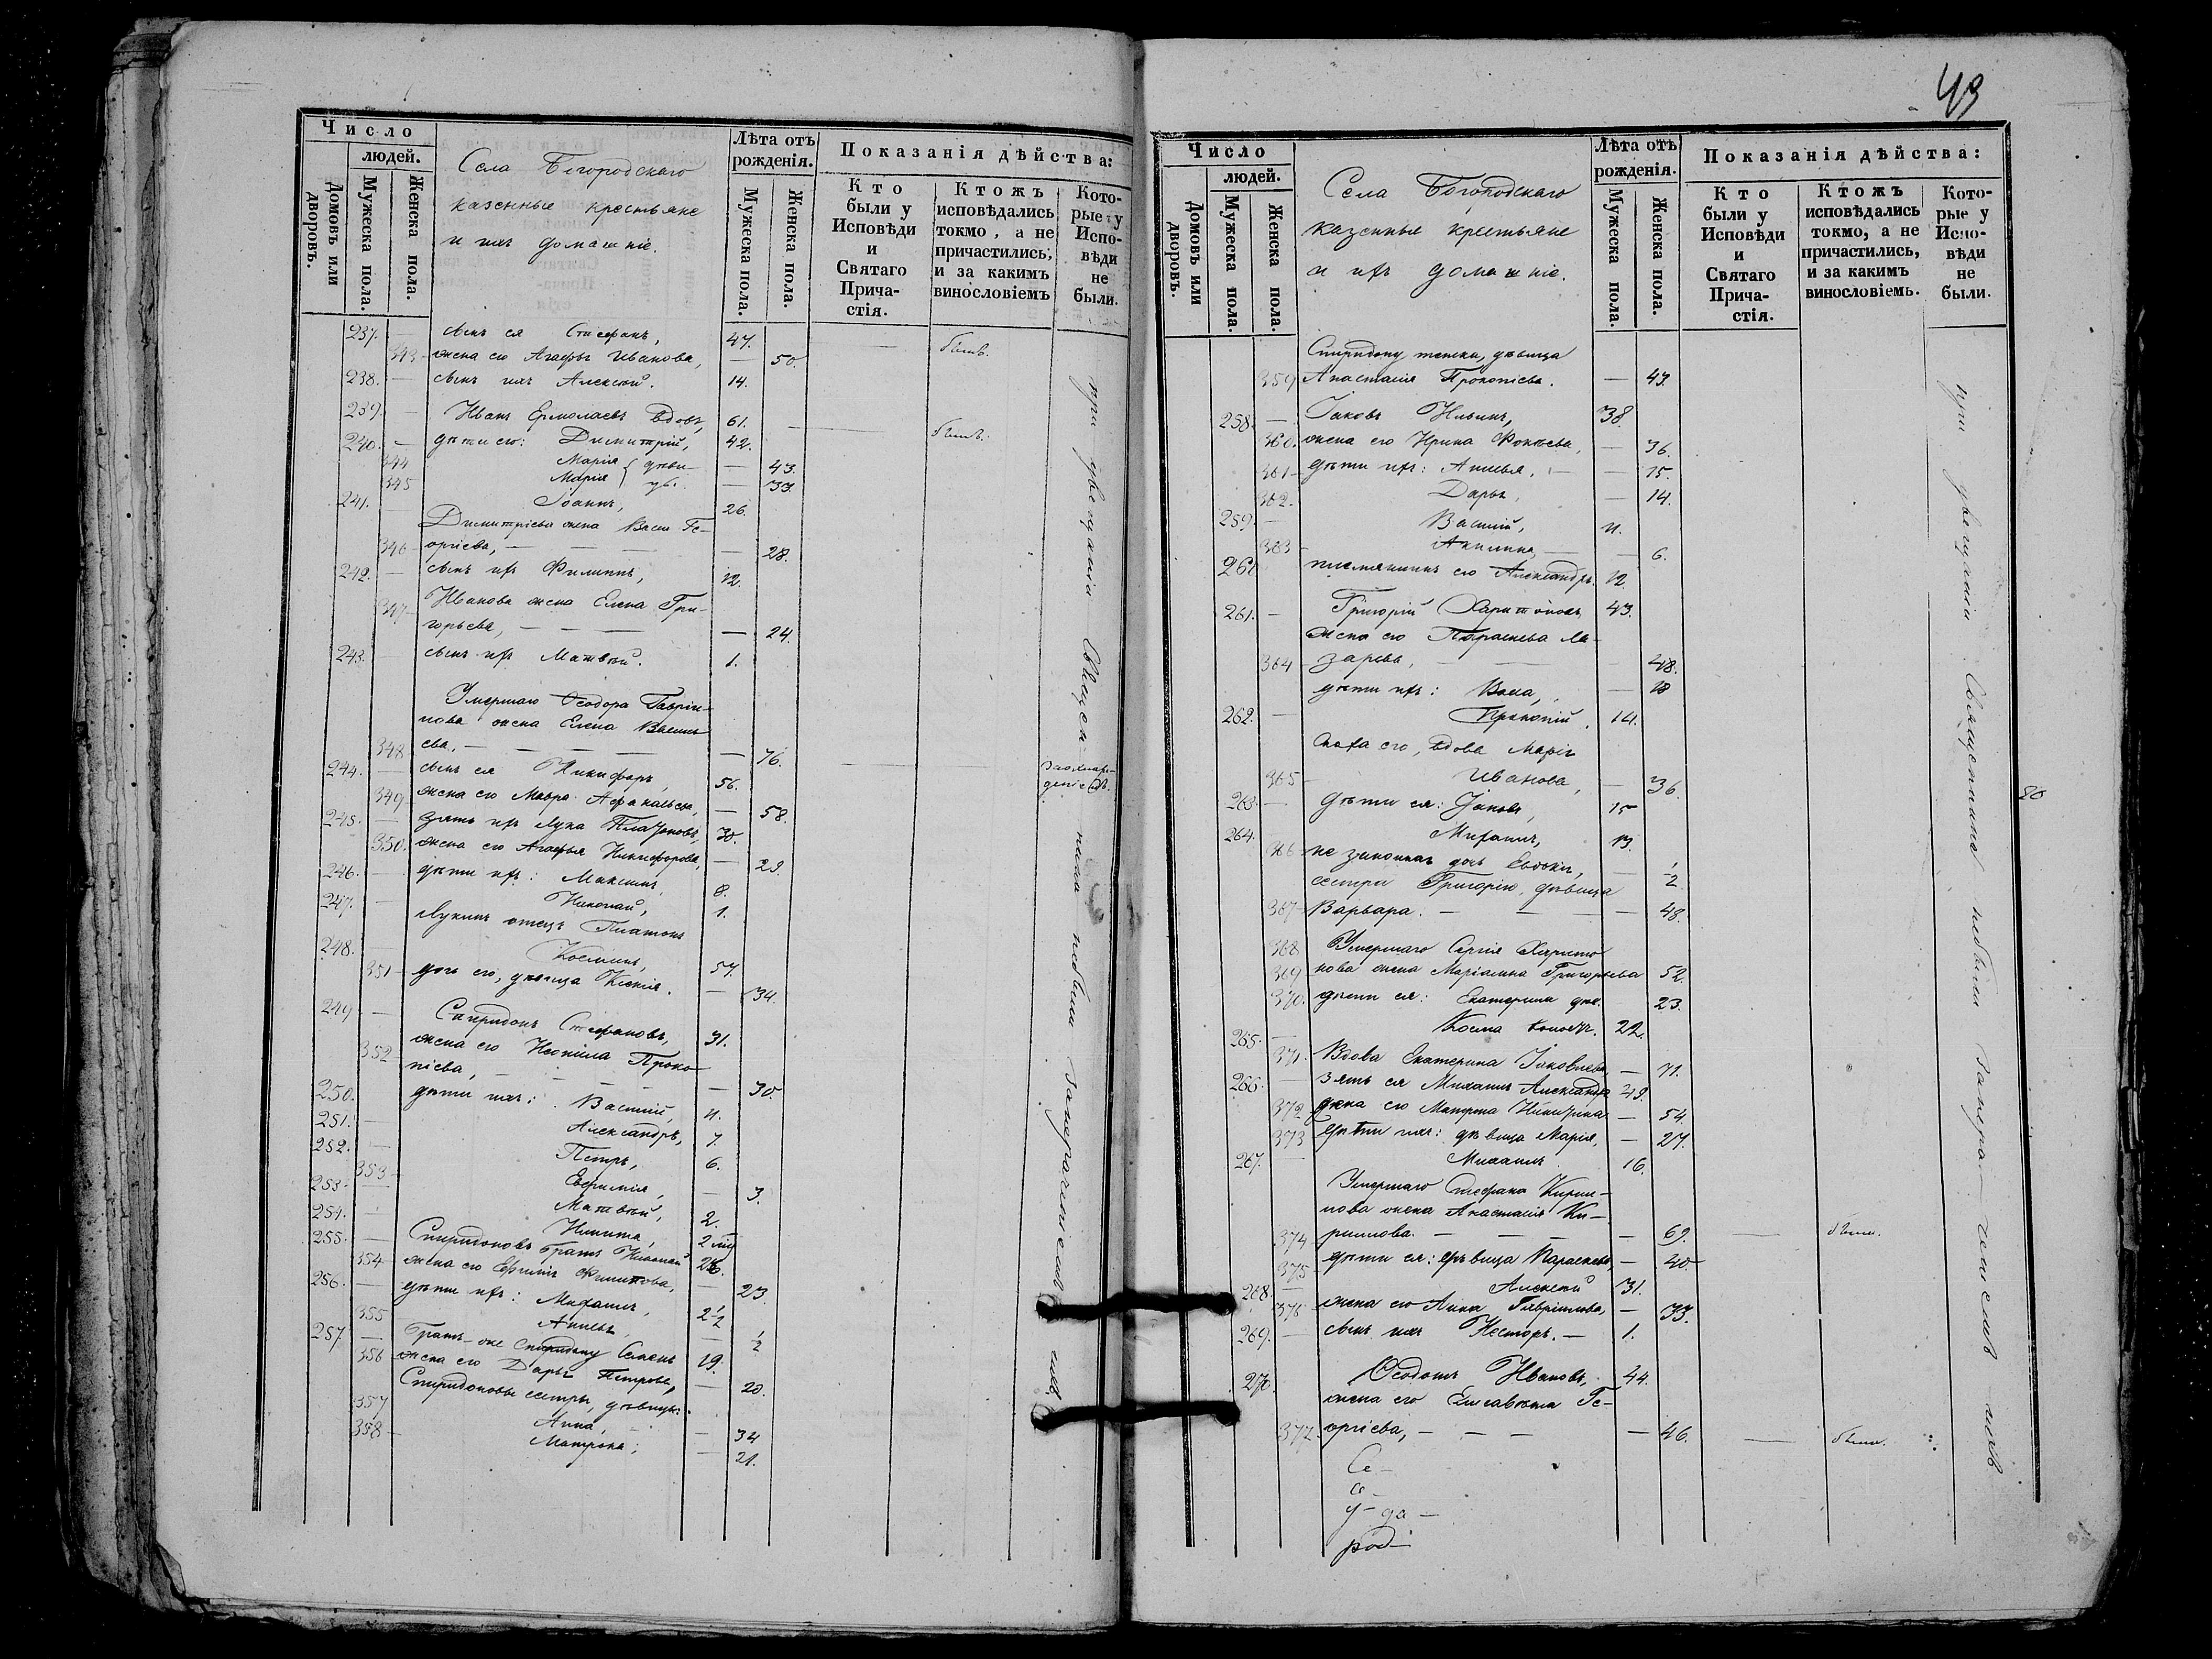 49
Число
людей.
Домовъ или дворовъ.
Мужеска пола.
Женска пола.
Села Богородскаго
казенные крестьяне
и ихъ домашніе.
Лѣта отъ рожденія.
Мужеска пола.
Женска пола.
Показанія дѣйства:
Кто были у Исповѣди и Святаго Прича-стія.
Ктожъ исповѣдались токмо, а не причастились, и за какимъ винословіемъ
Кото-рые у Испо-вѣди не были.
237. — сынъ ея Стефанъ, 47.
343 — жена его Агафья Иванова, — 50. — былъ.
238. — сынъ ихъ Алексѣй. 14.
239. — Иванъ Ермолаевъ вдовъ, 61. — былъ.
240. — дѣти его: Димитрій, 42.
344 Марія — 43.
345 Марія — 33.
241. Іоаннъ, 26.
Димитріева жена Васса Ге-
346 — оргіева, — 28.
242. — сынъ ихъ Филиппъ, 12.
347 Иванова жена Елена Гри-
горьева, — 24.
243. сынъ ихъ Матвѣй. 1.
Умершаго Ѳеодора Гаврі-
лова жена Елена Василь
348 ева. — 76.
244. — сынъ ея Никифоръ, 56.
349 жена его Мавра Афанасьева, — 58.
245. — зять ихъ Лука Платоновъ, 30.
350. жена его Агафья Никифорова, — 29.
246. — дѣти ихъ: Максимъ, 8.
247. — Николай, 1.
Лукинъ отецъ Платонъ
248. Косминъ, 57.
351 — дочь его, дѣвица Ксенія. — 34.
249 — Спиридонъ Стефановъ, 31.
352 жена его Неонила Проко-
піева, — 30.
250. дѣти ихъ: Василій, 11.
251. — Александръ, 7.
252. — Петръ, 6.
353 — Евфимія, — 3.
253. — Матвѣй, 2.
254. — Никита,
255. — Спиридоновъ братъ Николай 26.
354 жена его Филипова, — 23.
256. — дѣти ихъ: Михаилъ, 2½
355 — ½
257 — Братъ-же Спиридону Семенъ 19.
356 жена его Дарья Петрова, — 20.
Спиридоновы сестры, дѣвицы:
357 Анна, — 34
358 — Матрона; — 21.
при увѣщаніи Священ- никъ небыли
Число
людей.
Домовъ или дворовъ.
Мужеска пола.
Женска пола.
Села Богородскаго
казенные крестьяне
и ихъ домашніе.
Лѣта отъ рожденія.
Мужеска пола.
Женска пола.
Показанія дѣйства:
Кто были у Исповѣди и Святаго Прича-стія.
Ктожъ исповѣдались токмо, а не причастились, и за какимъ винословіемъ.
Кото-рые у Испо-вѣди не были.
Спиридону тетка, дѣвица
359 Анастасія Прокопіева. — 43.
258. — Іаковъ Ильинъ, 38.
360. жена его Ирина Фокіева, — 36.
361 — дѣти ихъ: — 15.
362. Дарья, — 14.
259. — Василій, 11.
363 Акилина, — 6.
260 племянникъ его Александръ. 12
261. — Григорій Харитоновъ 43.
жена его Параскева Ла-
364 зарева, — 48.
дѣти ихъ: — 18
262. — Прокопій 14.
сноха его, вдова Марія
365 — Иванова, — 36.
263 — дѣти ея: Іаковъ, 15
264. Михаилъ, 13.
366 незаконная дочь Евдокія, — ½
сестра Григорію, дѣвица
367 — Варвара. — 48.
368 Умершаго Сергія Харито
369 нова жена Маріамна Григорьева 52.
370. дѣти ея: Екатерина дѣв. 23.
265. — Косма холостъ. 22.
371. Вдова Екатерина Іаковлева — 71.
266. — зять ея Михаилъ Александровъ 49.
372 жена его Матрона Никитина — 54.
373 дѣти ихъ: дѣвица Марія, — 27.
267. — Михаилъ. 16.
Умершаго Стефана Кирил-
лова жена Анастасія Ки-
374 риллова. — 69. — были.
375 — дѣти ея: дѣвица Параскева, — 40.
268. — Алексѣй 31.
376 жена его Анна Гавріилова, — 33.
269. — сынъ ихъ Несторъ. — 1.
270. Ѳеодотъ Ивановъ, 44.
жена его Елисавета Ге-
377. оргіева, — 46. — были.
Се-
се-
у-да-
род-
при увѣщаніи Священникъ небыли
20